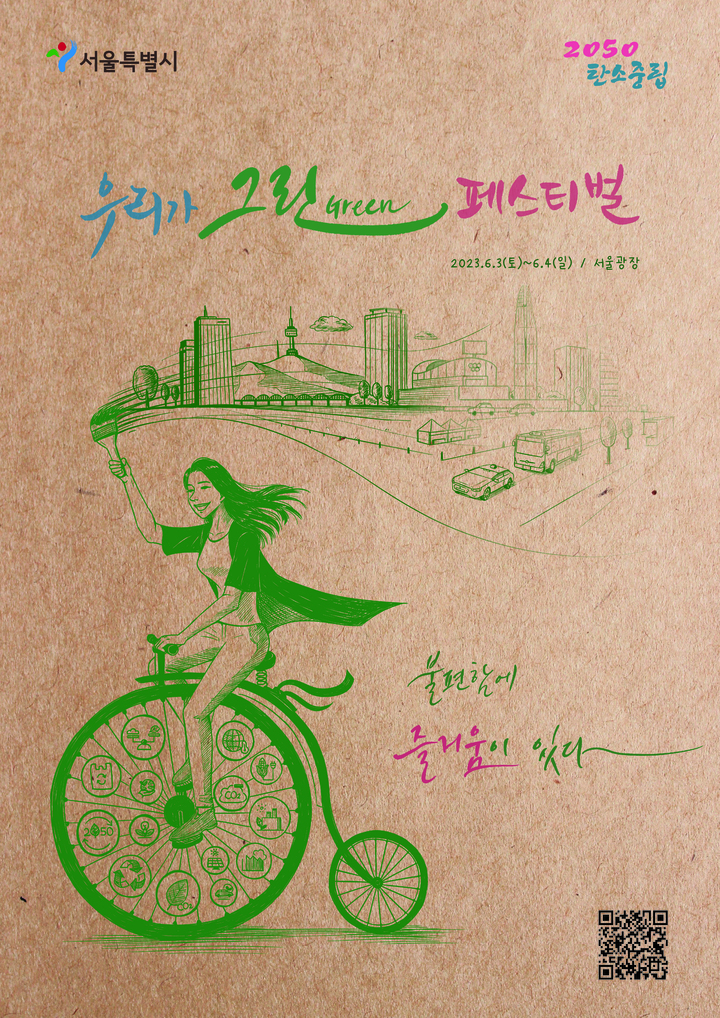 서울특별시
2050
탄소중립
우리가 그린 Green 페스티벌
2023.6.3(토)~6.4(일) / 서울광장
불편함에
즐거움이 있다
CO₂
2050
CO₂